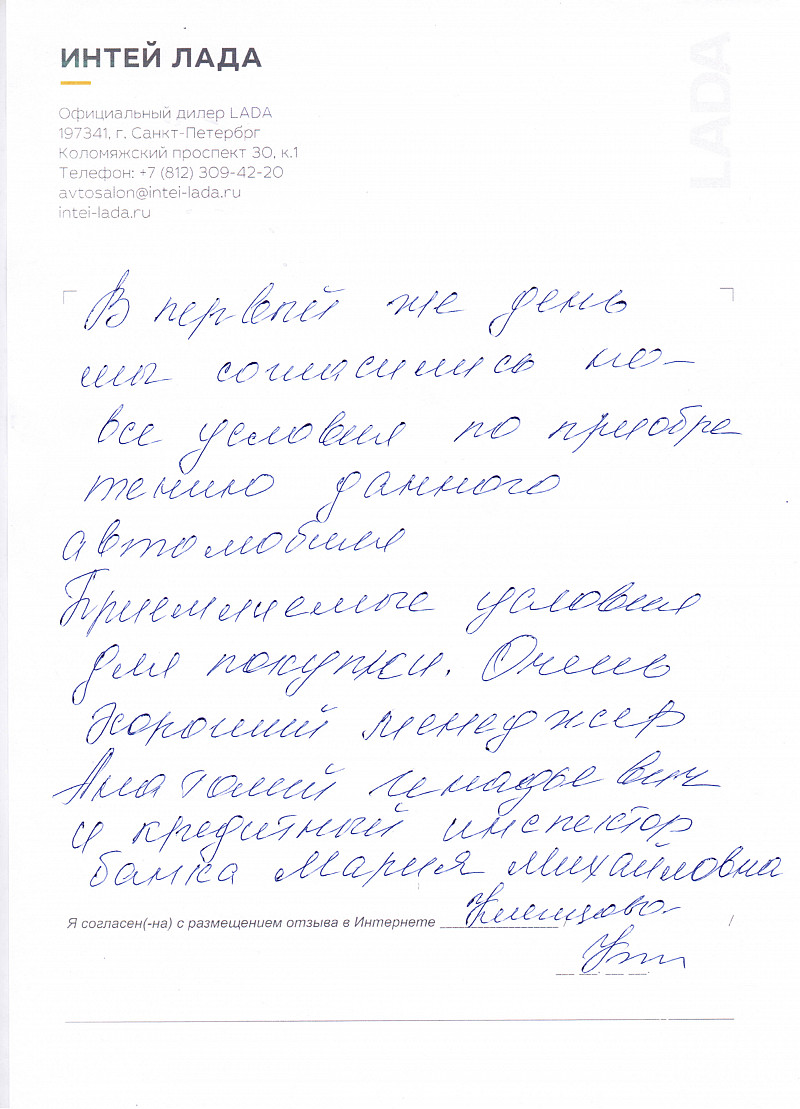 ИНТЕЙ ЛАДА
LADA
Официальный дилер LADA
197341, г. Санкт-Петербрг
Коломяжский проспект 30, к.1
Телефон: +7 (812) 309-42-20
avtosalon@intei-lada.ru
intei-lada.ru
В первый же день
мы согласились на
все условия по приобре
тению данного
автомобиля
Приемлиемые условия
для покупки. Очень
хороший менеджер
Анатолий Генадьевич
и кредитный инспектор
банка Мария Михайловна
Я согласен(-на) с размещением отзыва в Интернете